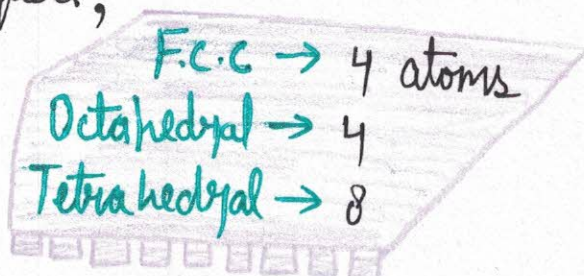 F.C.C → 4 atoms
Octahedral → 4
Tetrahedral → 8